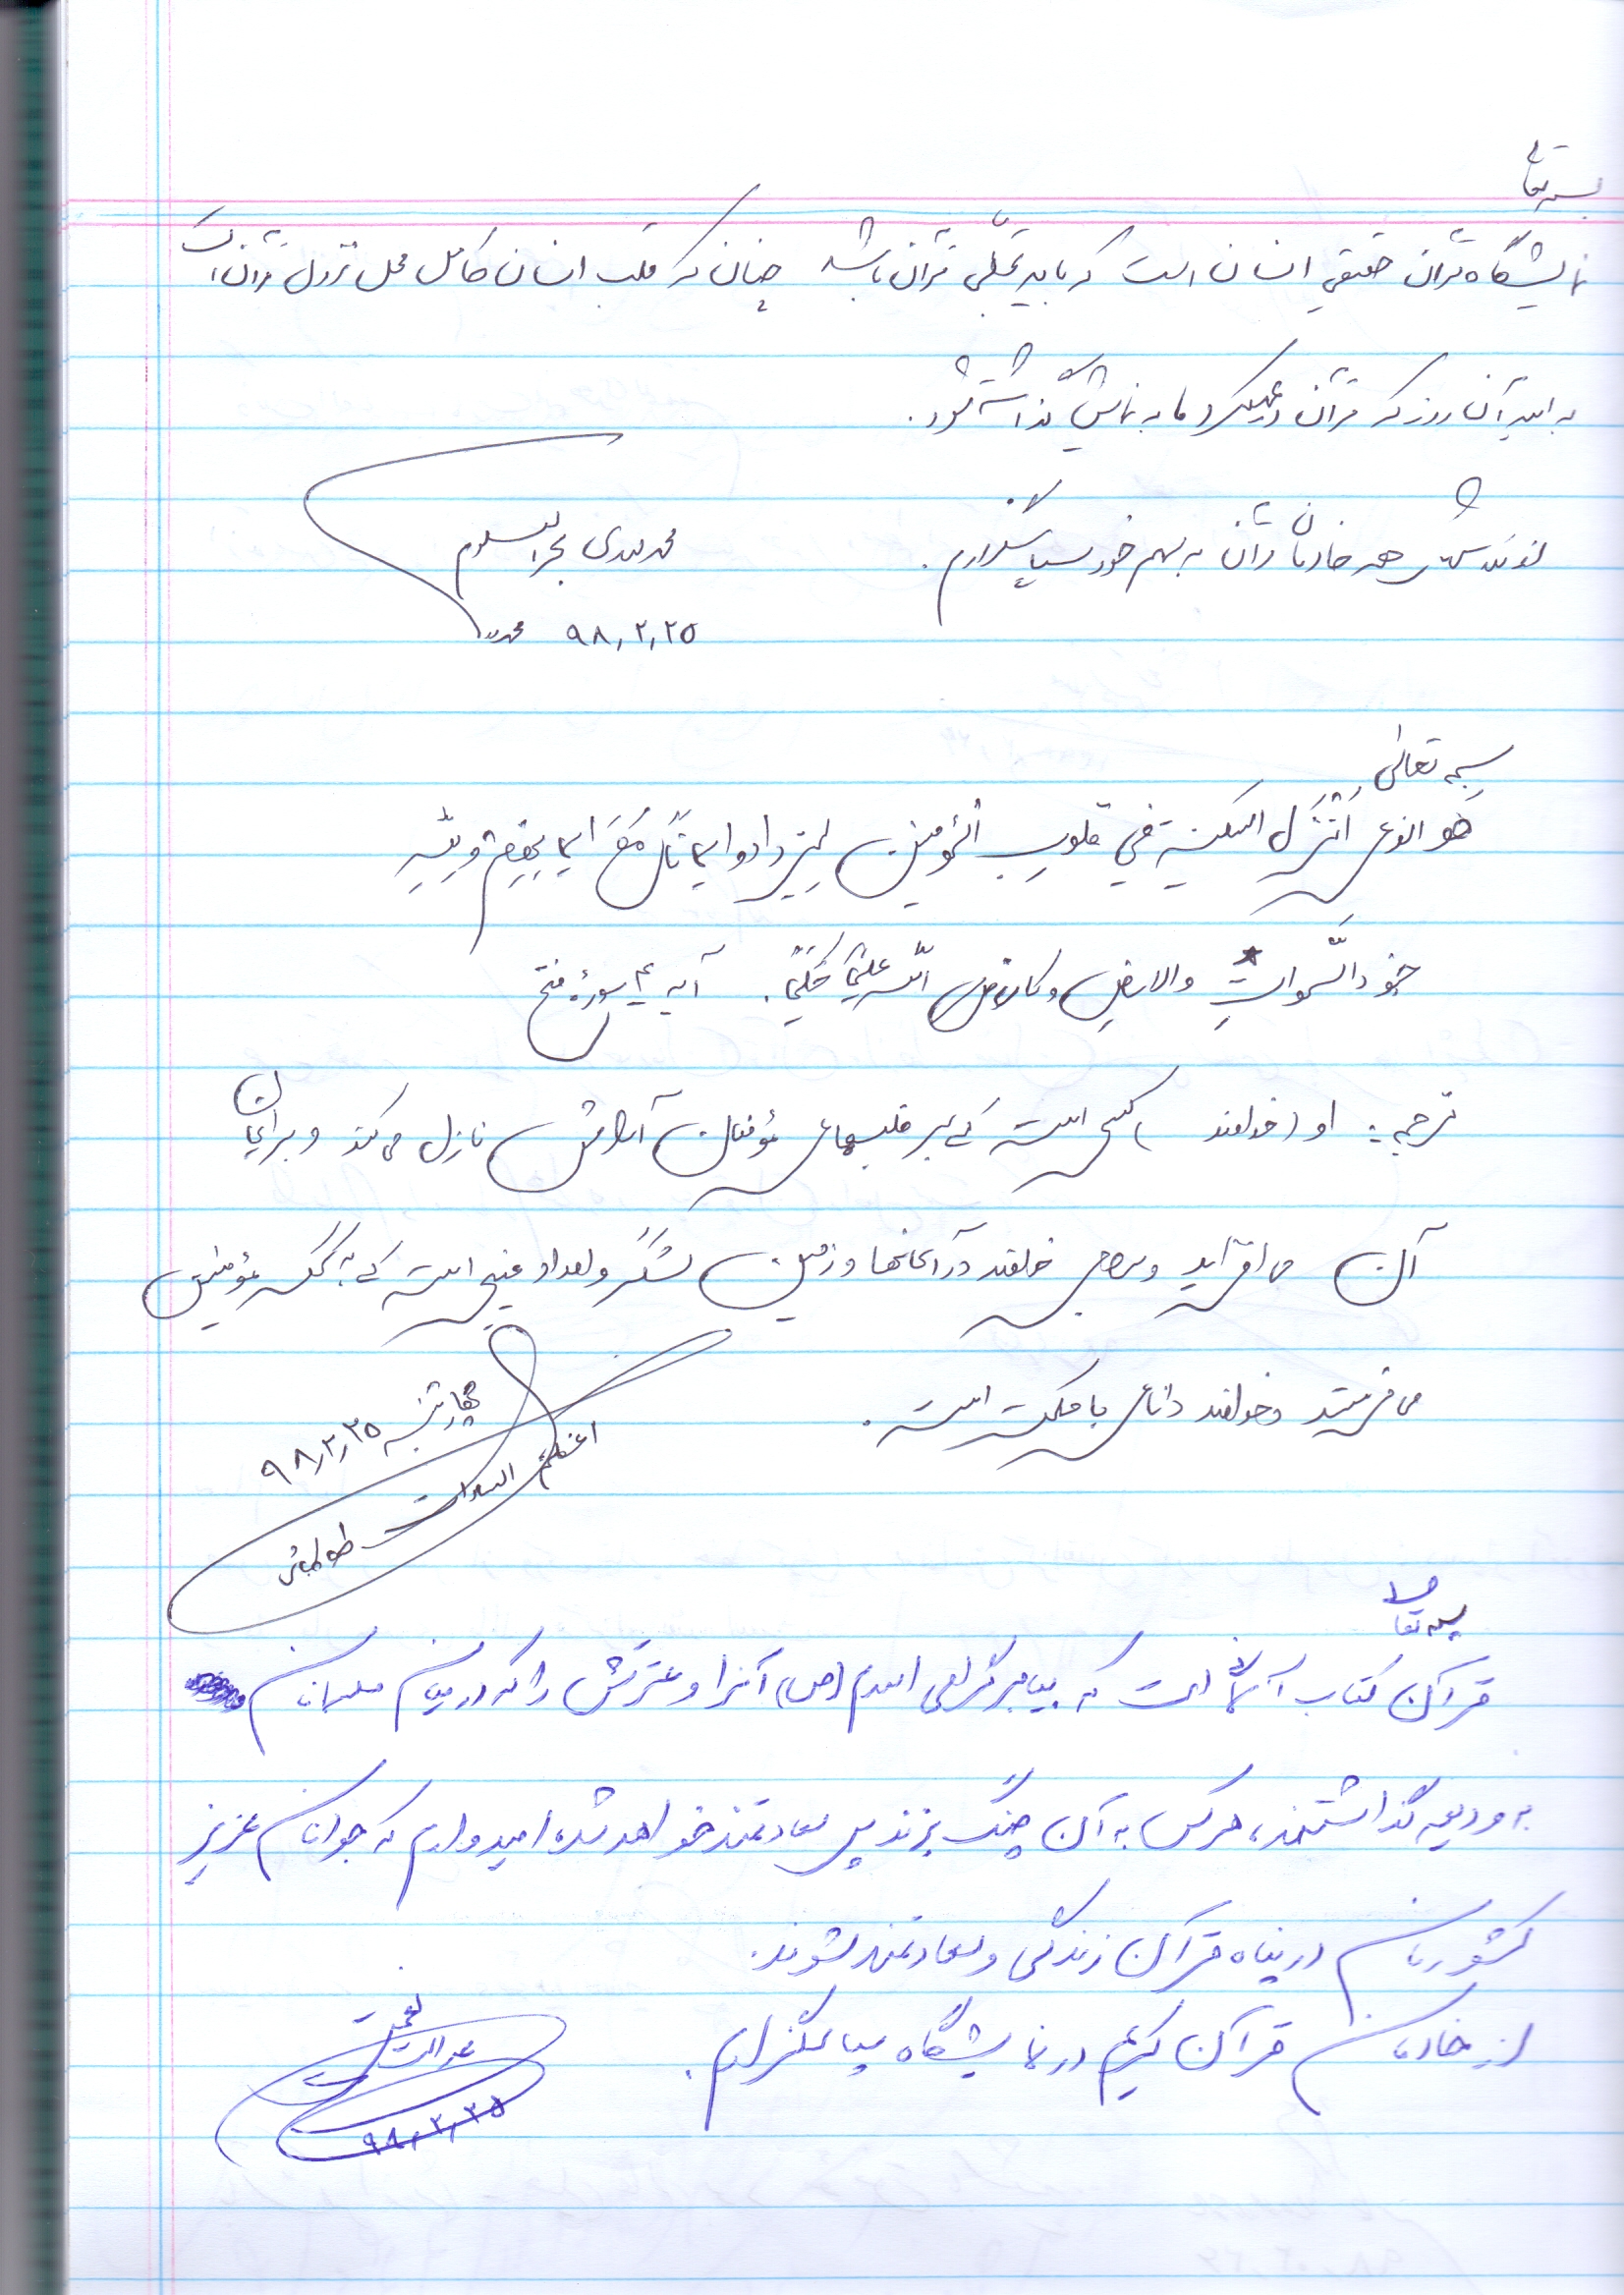 بسمه تعالی
نمایشگاه قرآن حقیقی انسان است که باید تجلی قرآن باشد چنان که قلب انسان کامل محل نزول قرآن است
به امید آن روز که قرآن در عملکرد ما به نمایش گذاشته شود.
از همه خادمان قرآن به سهم خود سپاسگزارم.
محمدمهدی بحرالعلوم
۹۸,۲,۲۵
بسمه تعالی
هو الذی اَنْزَلَ السکینةِ فی قلوبِ المؤمنین لیزدادو ایماناً مَعَ ایمانِهِم و لله
جنود السَّمواتِ والارض و کان الله علیماً حکیماً. آیه ۴ سورۀ فتح
ترجمه: او (خداوند) کسی است که بر قلبهای مؤمنان آرامش نازل می‌کند و بر ایمان
آنان می‌افزاید و برای خداوند در آسمانها و زمین لشگر و امداد غیبی است که به کمک مؤمنین
می‌فرستد و خداوند دانای با حکمت است.
چهارشنبه ۹۸,۲,۲۵
اعظم السادات طباطبائی
بسمه تعالی
قرآن کتاب آسمانی است که پیامبر گرامی اسلام (ص) آنرا و عترتش را که در میان مسلمانان
به ودیعه گذاشتند، هرکس به آن چنگ بزند پس سعادتمند خواهد شد، امیدوارم که جوانان عزیز
کشورمان در پناه قرآن زندگی و سعادتمند شوند.
از خادمان قرآن کریم در نمایشگاه سپاسگزارم.
عدالت
۹۸,۲,۲۵